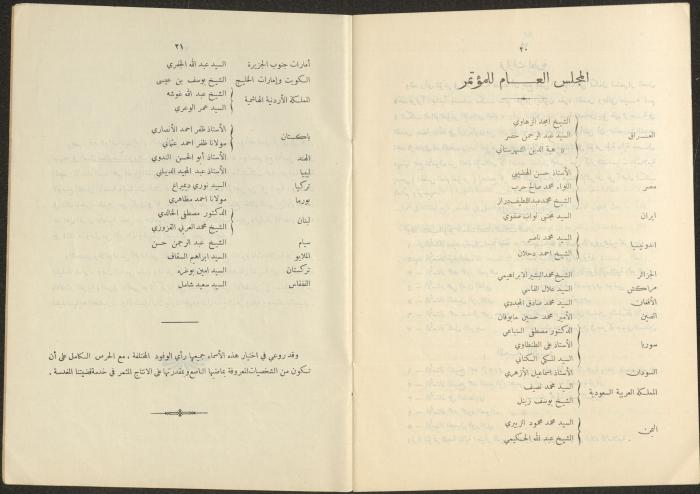 ٢٠
المجلس العـــام للمؤتمر
العـراق
الشيخ امجد الزهاوي
السيد عبد الرحمن خضر
« هبة الدين الشهرستاني
مصر
الأستاذ حسن الهضيبي
اللواء محمد صالح حرب
الشيخ محمد عبداللطيف دراز
ايران السيد مجتبى نواب صفوي
اندونيسيا
السيد محمد ناصر
الشيخ احمد دحلان
الجزائر الشيخ محمد البشير الابراهيمي
مراكش السيد علال الفاسي
الأفغان السيد محمد صادق المجددي
الصين الأمير محمد حسين مابوفان
سوريا
الدكتور مصطفى السباعي
الأستاذ علي الطنطاوي
السيد المكي الكتاني
السودان الأستاذ اسماعيل الأزهري
المملكة العربية السعودية
السيد محمد نصيف
الشيخ يوسف زينل
اليمن
السيد محمد محمود الزبيري
الشيخ عبد الله الحكيمي
٢١
أمارات جنوب الجزيرة السيد عبد الله الجفري
الكويت وإمارات الخليج الشيخ يوسف بن عيسى
المملكة الأردنية الهاشمية
الشيخ عبد الله غوشه
السيد عمر الوعري
باكستان
الأستاذ ظفر احمد الأنصاري
مولانا ظفر احمد عثماني
الهند الأستاذ أبو الحسن الندوي
ليبيا الأستاذ عبد المجيد الديبلي
تركيا السيد نوري ديميراغ
بورما مولانا احمد مظاهري
لبنان
الدكتور مصطفى الخالدي
الشيخ محمد العربي العزوزي
سيام الشيخ عبد الرحمن حسن
الملايو السيد ابراهيم السقاف
تركستان السيد امين بوغره
القفقاس السيد سعيد شامل
وقد روعي في اختيار هذه الأسماء جميعها رأي الوفود المختلفة ، مع الحرص الكامل على أن
تكون من الشخصيات المعروفة بماضيها الناصع وبمقدرتها على الانتاج المثمر في خدمة قضيتنا المقدسة .